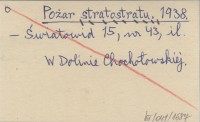 Pożar stratostatu, 1938.
– Światowid 15, nr 43, il.
W Dolinie Chochołowskiej.